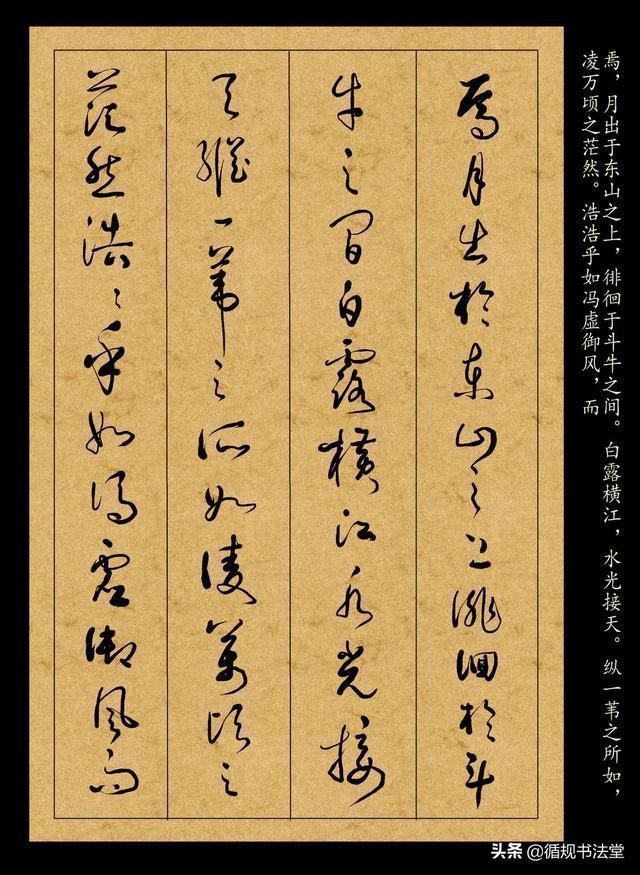 焉，月出于东山之上，徘徊于斗牛之间。白露横江，水光接天。纵一苇之所如，
凌万顷之茫然。浩浩乎如冯虚御风，而
焉月出於东山之上徘徊於斗
牛之间白露横江水光接
天纵一苇之所如凌万顷之
茫然浩々乎如冯虚御风而
头条 @循规书法堂